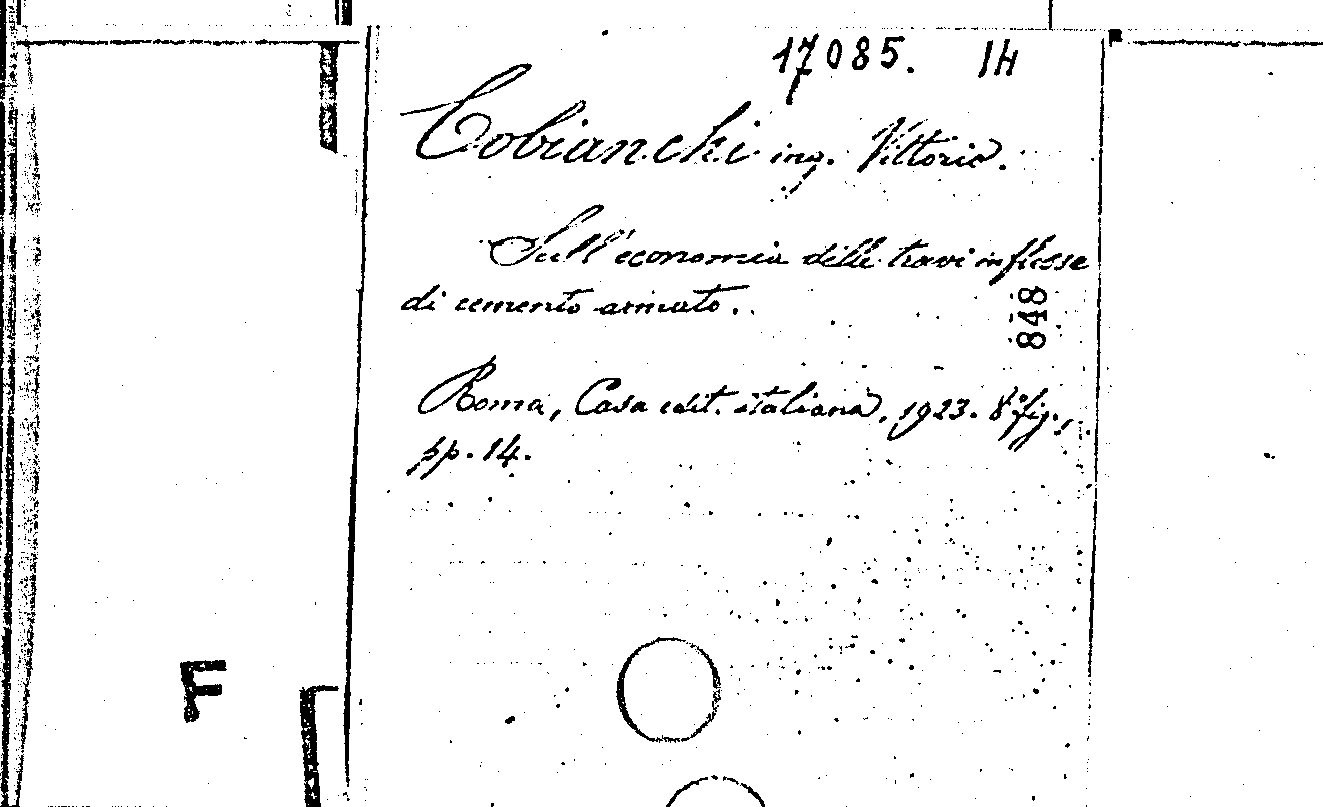 17085. 14
Cobianchi ing. Vittorio.
Sull'economia delle travi inflesse
di cemento armato.
848
Roma, Casa edit. italiana, 1923. 8° fig.,
pp. 14.
F